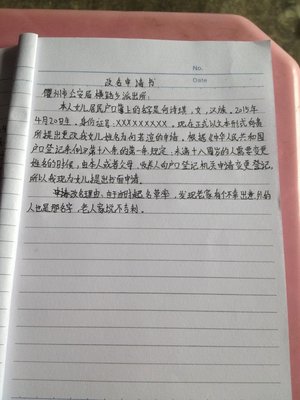 No.
Date
改名申请书
衢州市公安局横路乡派出所：
本人女儿居民户口簿上的名字是向诗琪，女，汉族。2015年
4月20日生，身份证号：XXXXXXXXXX。现在正式以文本形式向贵
所提出更改我女儿姓名为向若渲的申请。根据《中华人民共和国
户口登记条例》第十八条的第一条规定，未满十八周岁的人需要变更
姓名的时候，由本人或者父母、收养人向户口登记机关申请变更登记，
所以我现为女儿提出书面申请。
申请改名理由：由于当时起名草率，发现老家有个不幸出意外的
人也是那名字，老人家说不吉利。